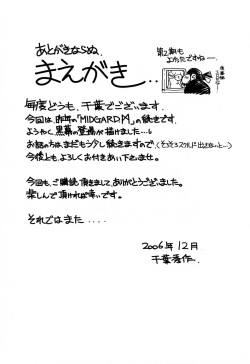 あとがきならぬ、
まえがき...
第2期も
よかったですねー。
毎度どうも、千葉でございます。
今回は、昨年の「MIDGARD M」の続きです。
ようやく、黒幕の登場が描けました...。
お話の方は、まだもう少し続きますので、
今後とも、よろしくお付きあい下さいませ。
今回も、ご購読頂きまして、ありがとうございました。
楽しんで頂ければ幸いです。
それではまた....
2006年12月
千葉秀作.